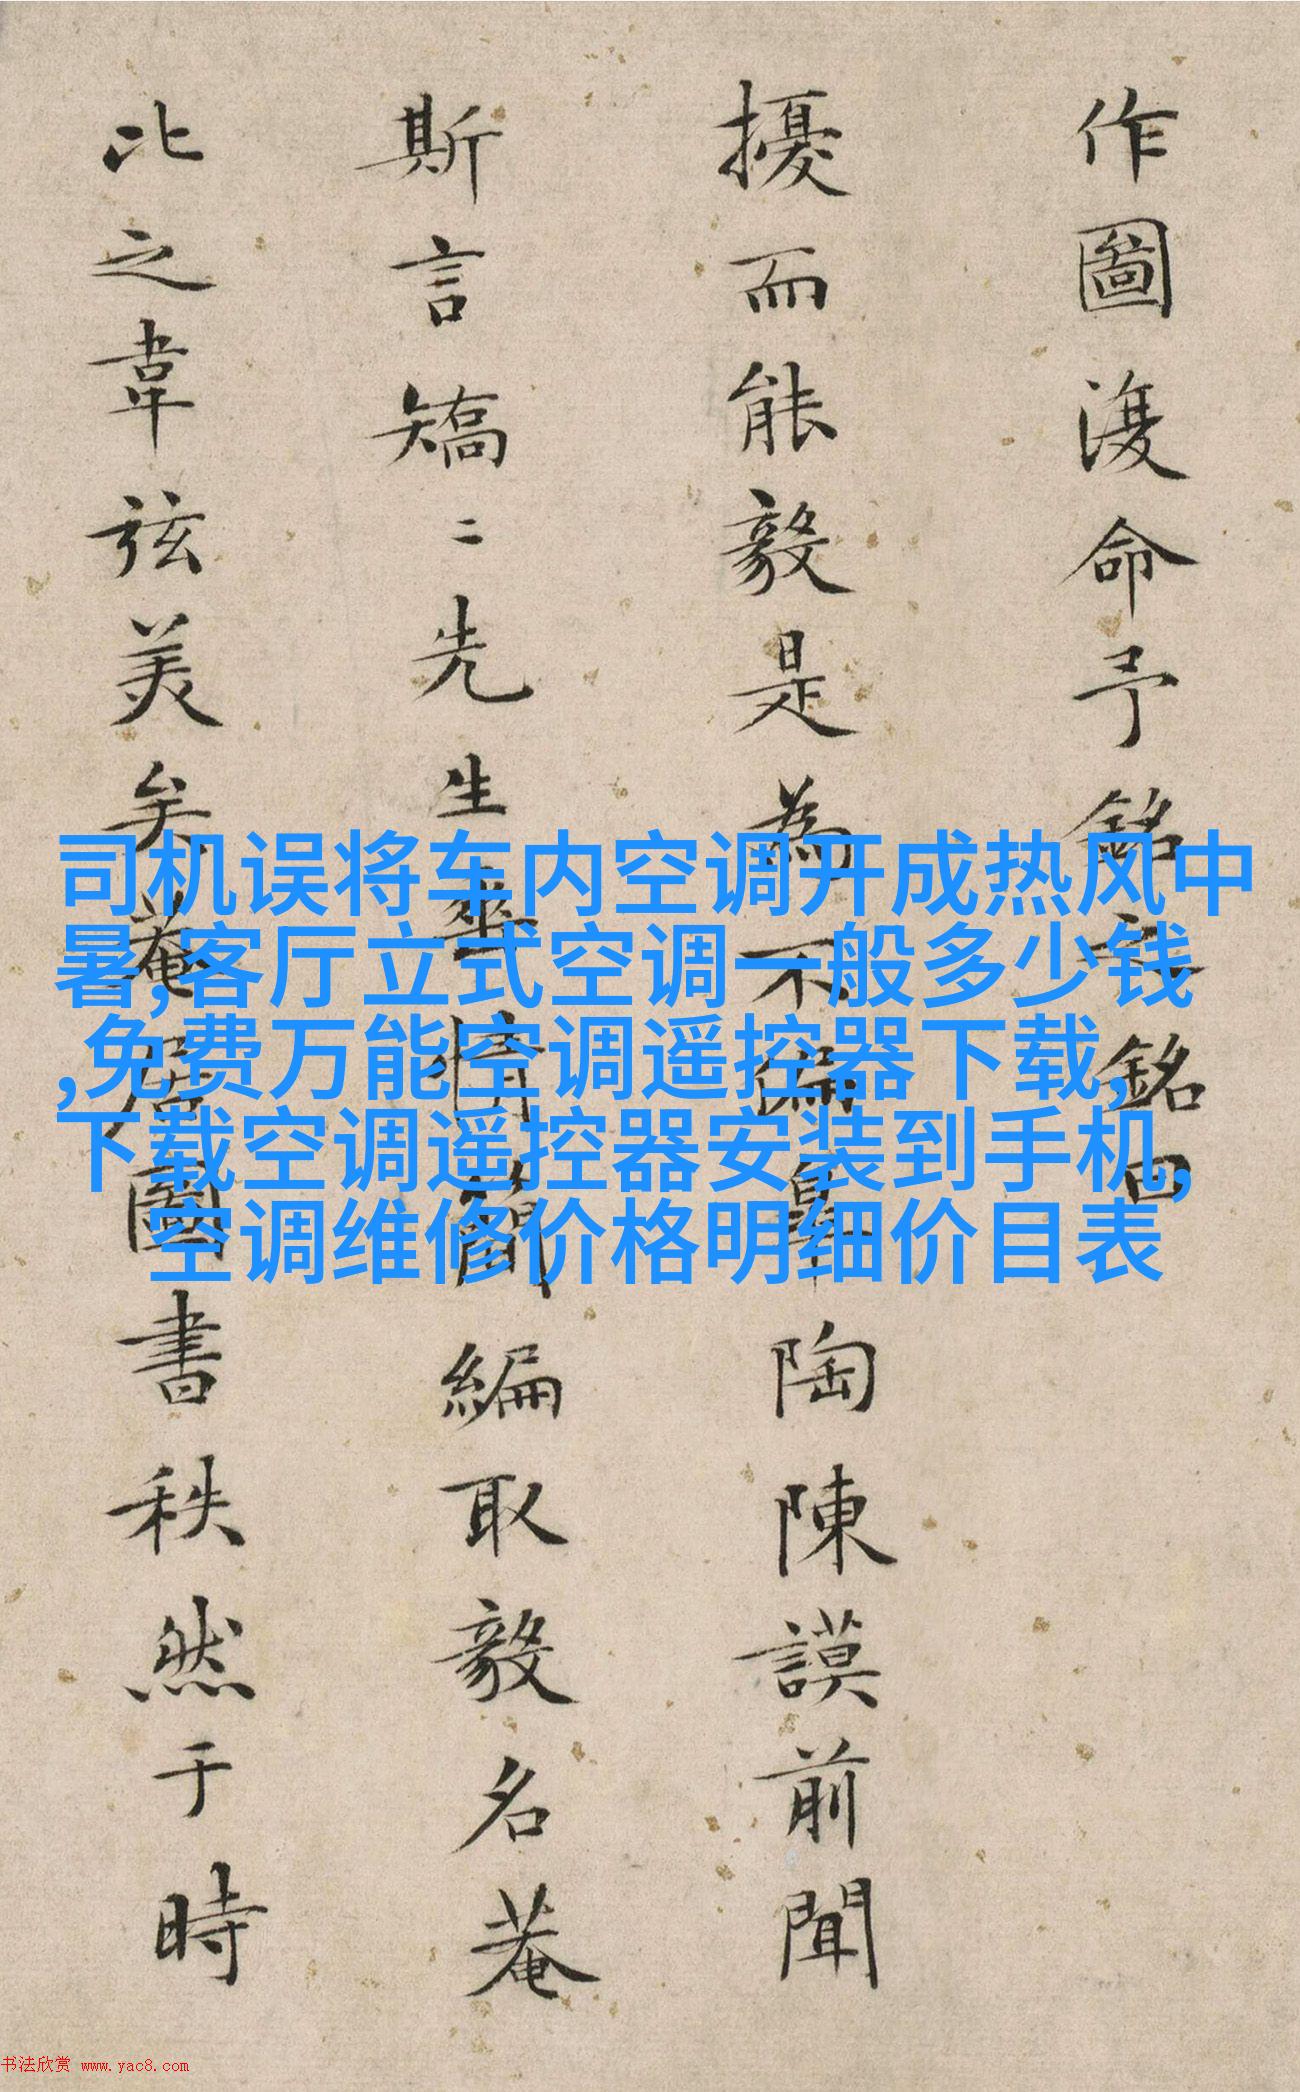 作圖復命予銘之銘曰
擾而能毅是為不偏皋陶陳謨前聞
斯言矯二先生性情簡編取毅名菴
比之韋弦美矣菴居圖書秩然于時
司机误将车内空调开成热风中
暑,客厅立式空调一般多少钱
,免费万能空调遥控器下载,
下载空调遥控器安装到手机,
空调维修价格明细价目表
书法欣赏 www.yac8.com